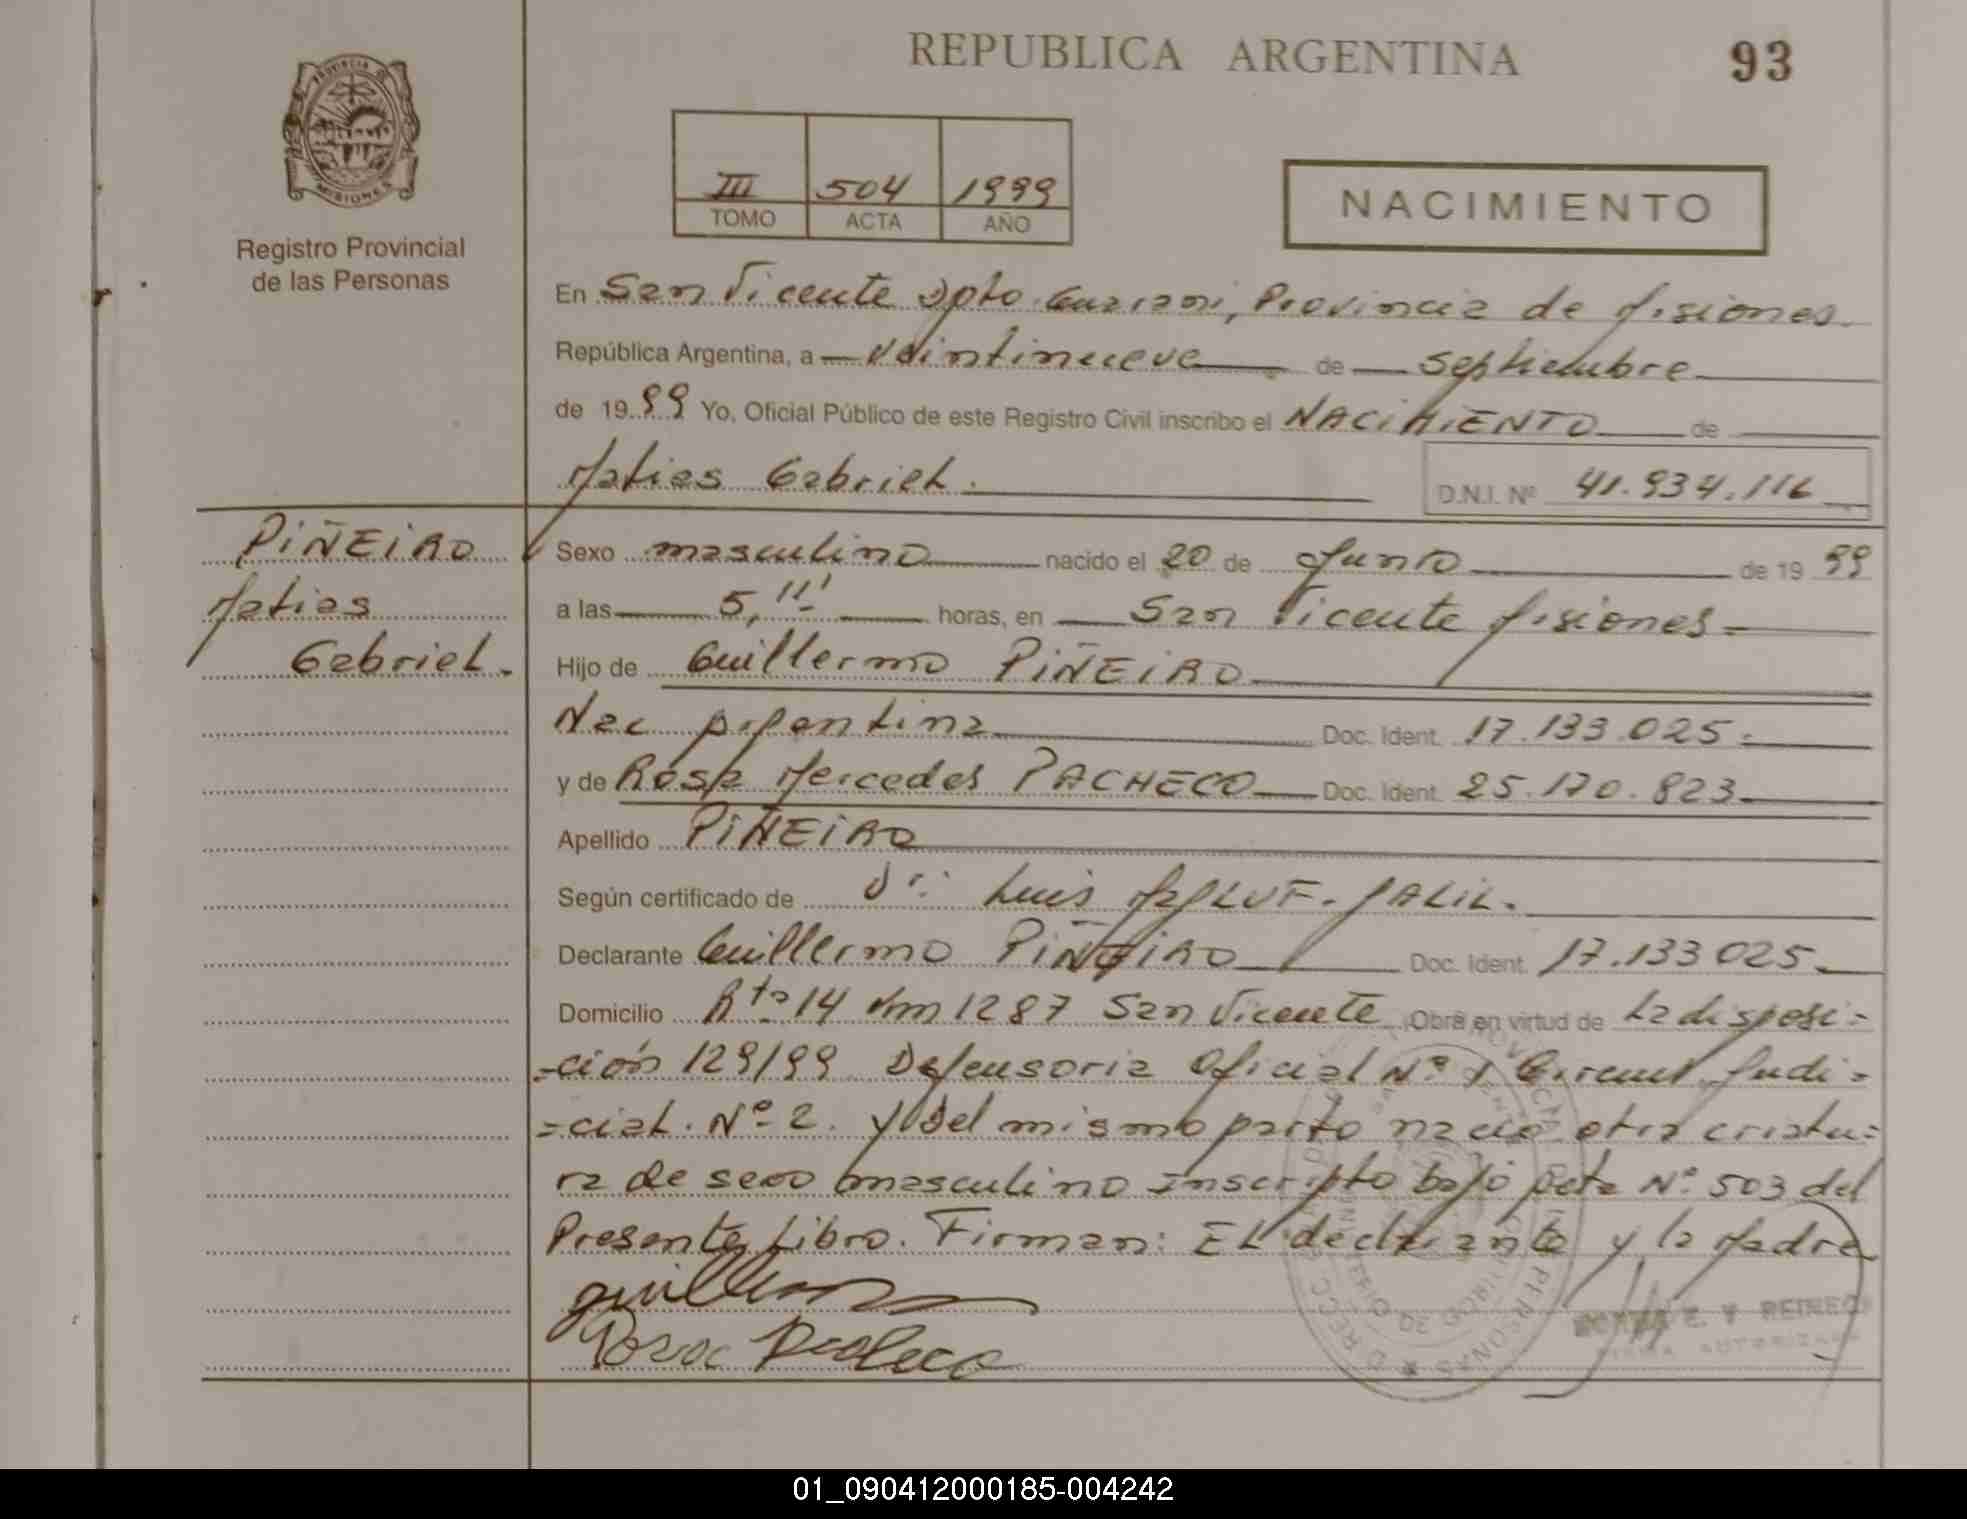 REPUBLICA ARGENTINA
93
PROVINCIA DE
MISIONES
Registro Provincial
de las Personas
III 504 1999
TOMO ACTA AÑO
NACIMIENTO
En San Vicente Dpto. Guarani, Provincia de Misiones.
República Argentina, a Veintinueve de Septiembre
de 19 99 Yo, Oficial Público de este Registro Civil inscribo el NACIMIENTO de
Matias Gabriel.
D.N.I. Nº 41.934.116
PIÑEIRO
Matias
Gabriel.
Sexo masculino nacido el 20 de Junio de 19 99
a las 5,11' horas, en San Vicente Misiones
Hijo de Guillermo PIÑEIRO
Nac Argentina Doc. Ident. 17.133.025.
y de Rosa Mercedes PACHECO Doc. Ident. 25.170.823
Apellido PIÑEIRO
Según certificado de Dr: Luis JALIL.
Declarante Guillermo PIÑEIRO Doc. Ident. 17.133025
Domicilio Rta 14 Km 1287 San Vicente Obra en virtud de La disposi=
=ción 129/99 Defensoria Oficial Nº 1 Circuns. Judi=
=cial. Nº 2. y del mismo parto nacio otra criatu=
ra de sexo masculino inscripto bajo Acta Nº 503 del
Presente Libro. Firman: EL declarante y la Madre
Guillermo
Rosa Pacheco
01_090412000185-004242